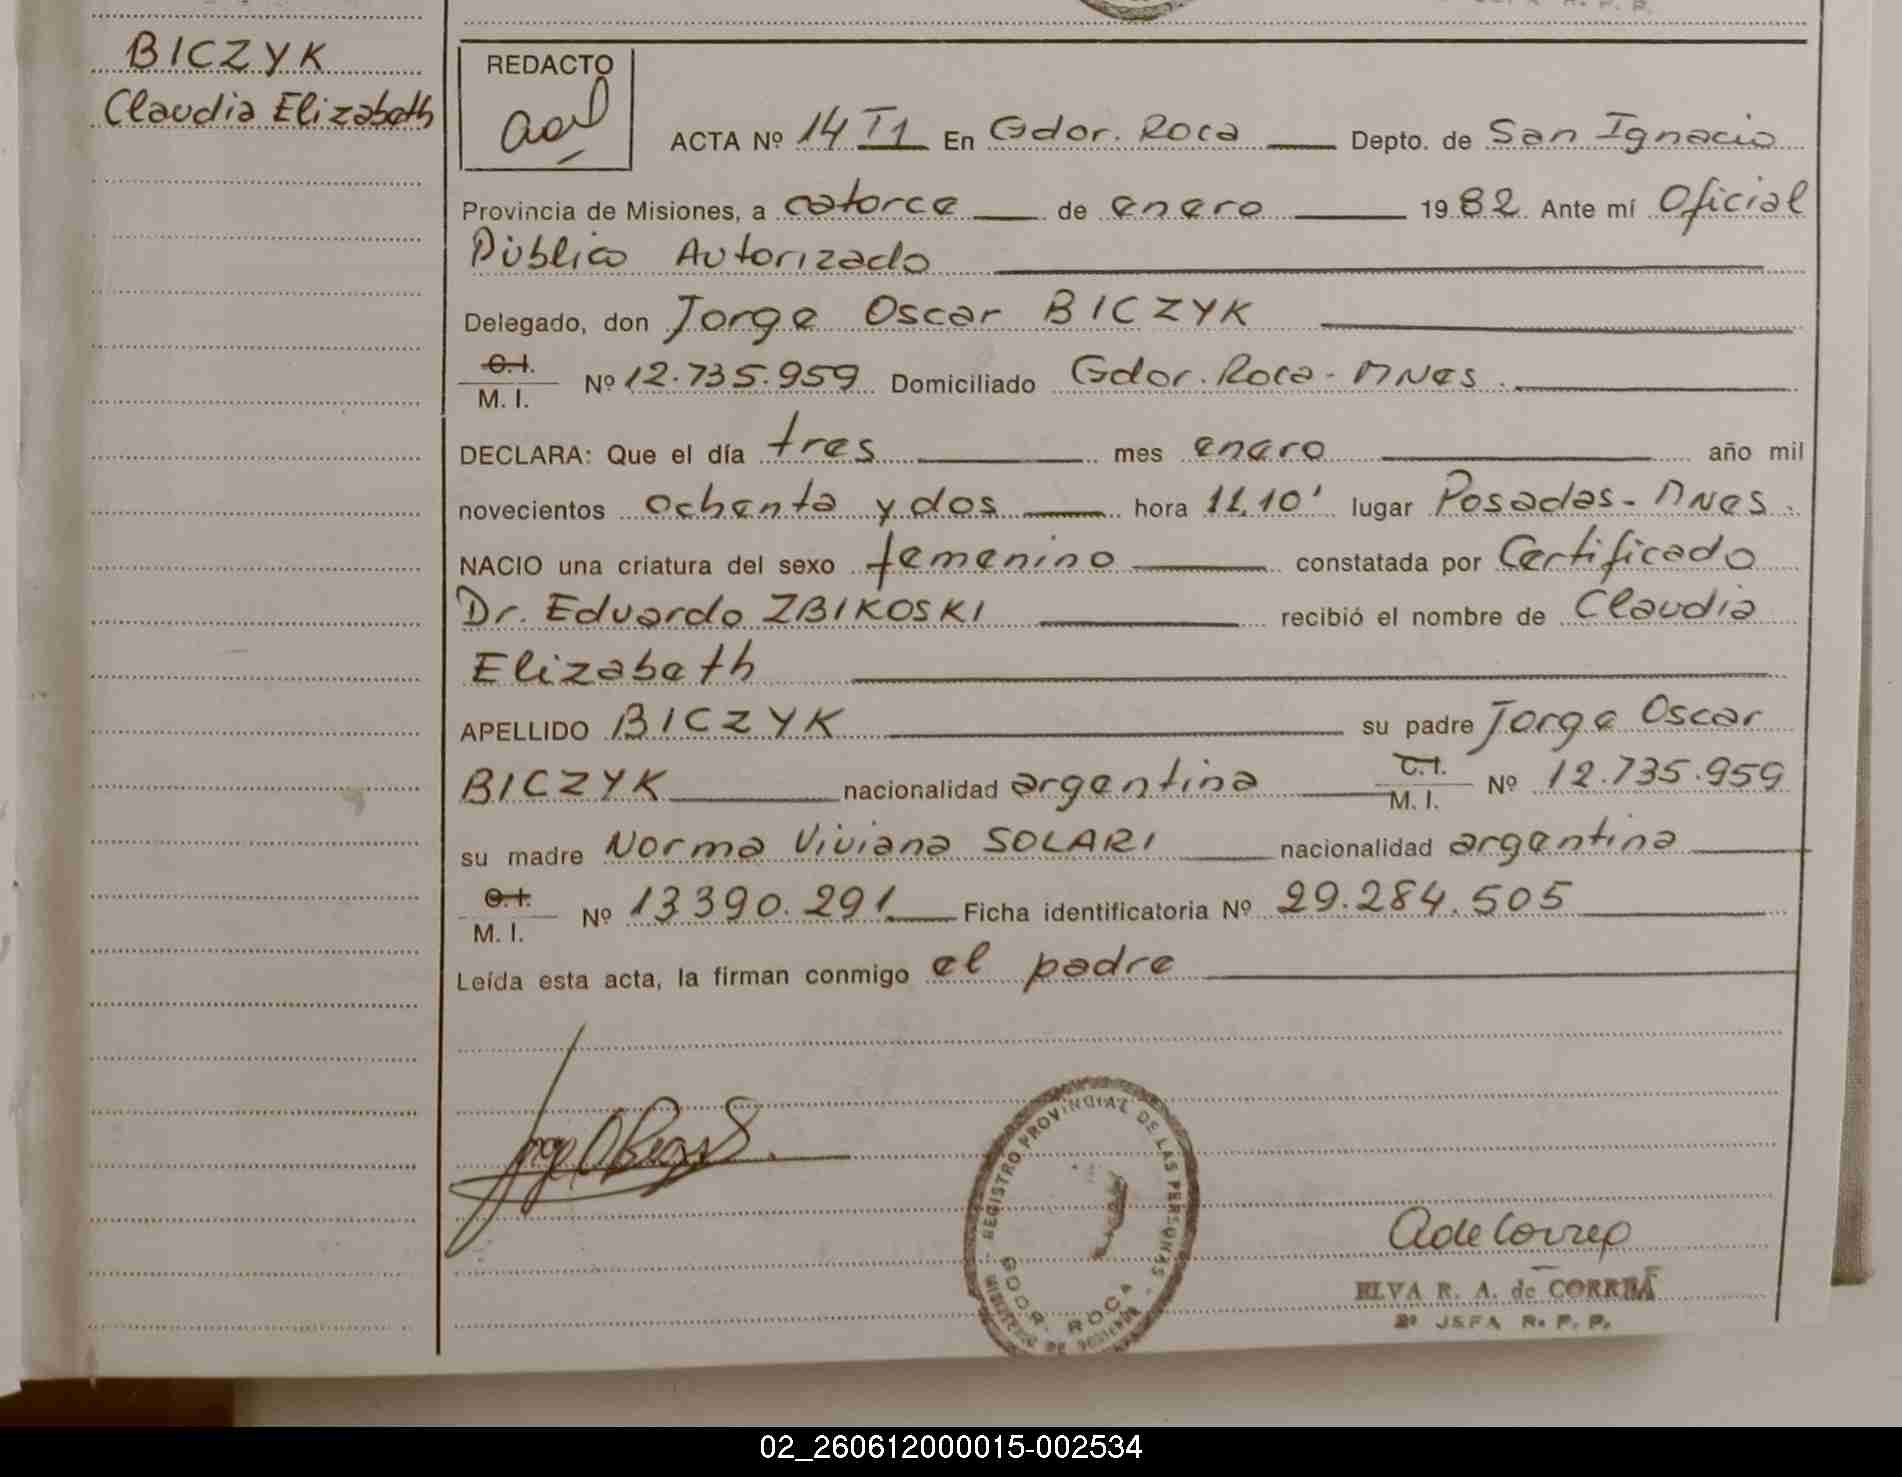 BICZYK
Claudia Elizabeth
REDACTO
ACTA Nº 14 T1 En Gdor. Roca Depto. de San Ignacio
Provincia de Misiones, a catorce de enero 1982 Ante mí Oficial
Público Autorizado
Delegado, don Jorge Oscar BICZYK
C.I.
M. I. Nº 12.735.959 Domiciliado Gdor. Roca - MNes.
DECLARA: Que el día tres mes enero año mil
novecientos ochenta y dos hora 11,10' lugar Posadas - MNes.
NACIO una criatura del sexo femenino constatada por Certificado
Dr. Eduardo ZBIKOSKI recibió el nombre de Claudia
Elizabeth
APELLIDO BICZYK su padre Jorge Oscar
BICZYK nacionalidad argentina C.I. M. I. Nº 12.735.959
su madre Norma Viviana SOLARI nacionalidad argentina
C.I.
M. I. Nº 13390.291 Ficha identificatoria Nº 29.284.505
Leída esta acta, la firman conmigo el padre
REGISTRO PROVINCIAL DE LAS PERSONAS
GDOR. ROCA
MINISTERIO DE GOBIERNO
ELVA R. A. de CORREA
2º JEFA R. P. P.
02_260612000015-002534